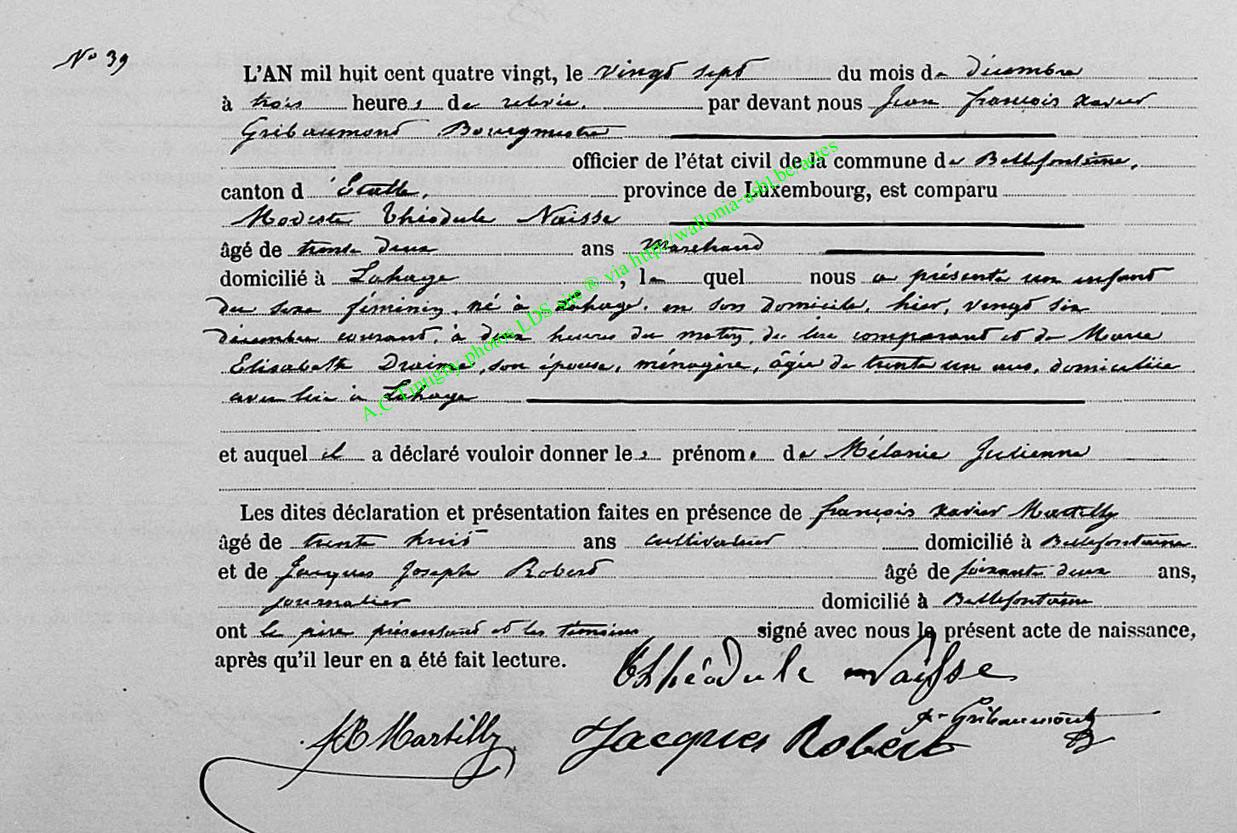 N° 39
L'AN mil huit cent quatre vingt, le vingt sept du mois de décembre
à trois heures de relevée, par devant nous Jean françois xavier
Gribaumont Bourgmestre
officier de l'état civil de la commune de Bellefontaine,
canton d Etalle, province de Luxembourg, est comparu
Modeste théodule Naisse
âgé de trente deux ans Marchand
domicilié à Lahage, lequel nous a présenté un enfant
du sexe féminin, né à Lahage, en son domicile, hier, vingt six
décembre courant, à deux heures du matin, de lui comparant et de Marie
Elisabeth, son épouse, ménagère, âgée de trente un ans, domiciliée
avec lui à Lahage
et auquel il a déclaré vouloir donner les prénoms de Mélanie Julienne
Les dites déclaration et présentation faites en présence de françois xavier Martilly
âgé de trente huit ans cultivateur domicilié à Bellefontaine
et de Jacques Joseph Robert âgé de soixante deux ans,
journalier domicilié à Bellefontaine
ont le père présentant et les témoins signé avec nous le présent acte de naissance,
après qu'il leur en a été fait lecture.
Théodule Naisse
Gribaumont
fx Martilly Jacques Robert
A.C. Tintigny photos LDS site ® via http://wallonia-asbl.be/actes